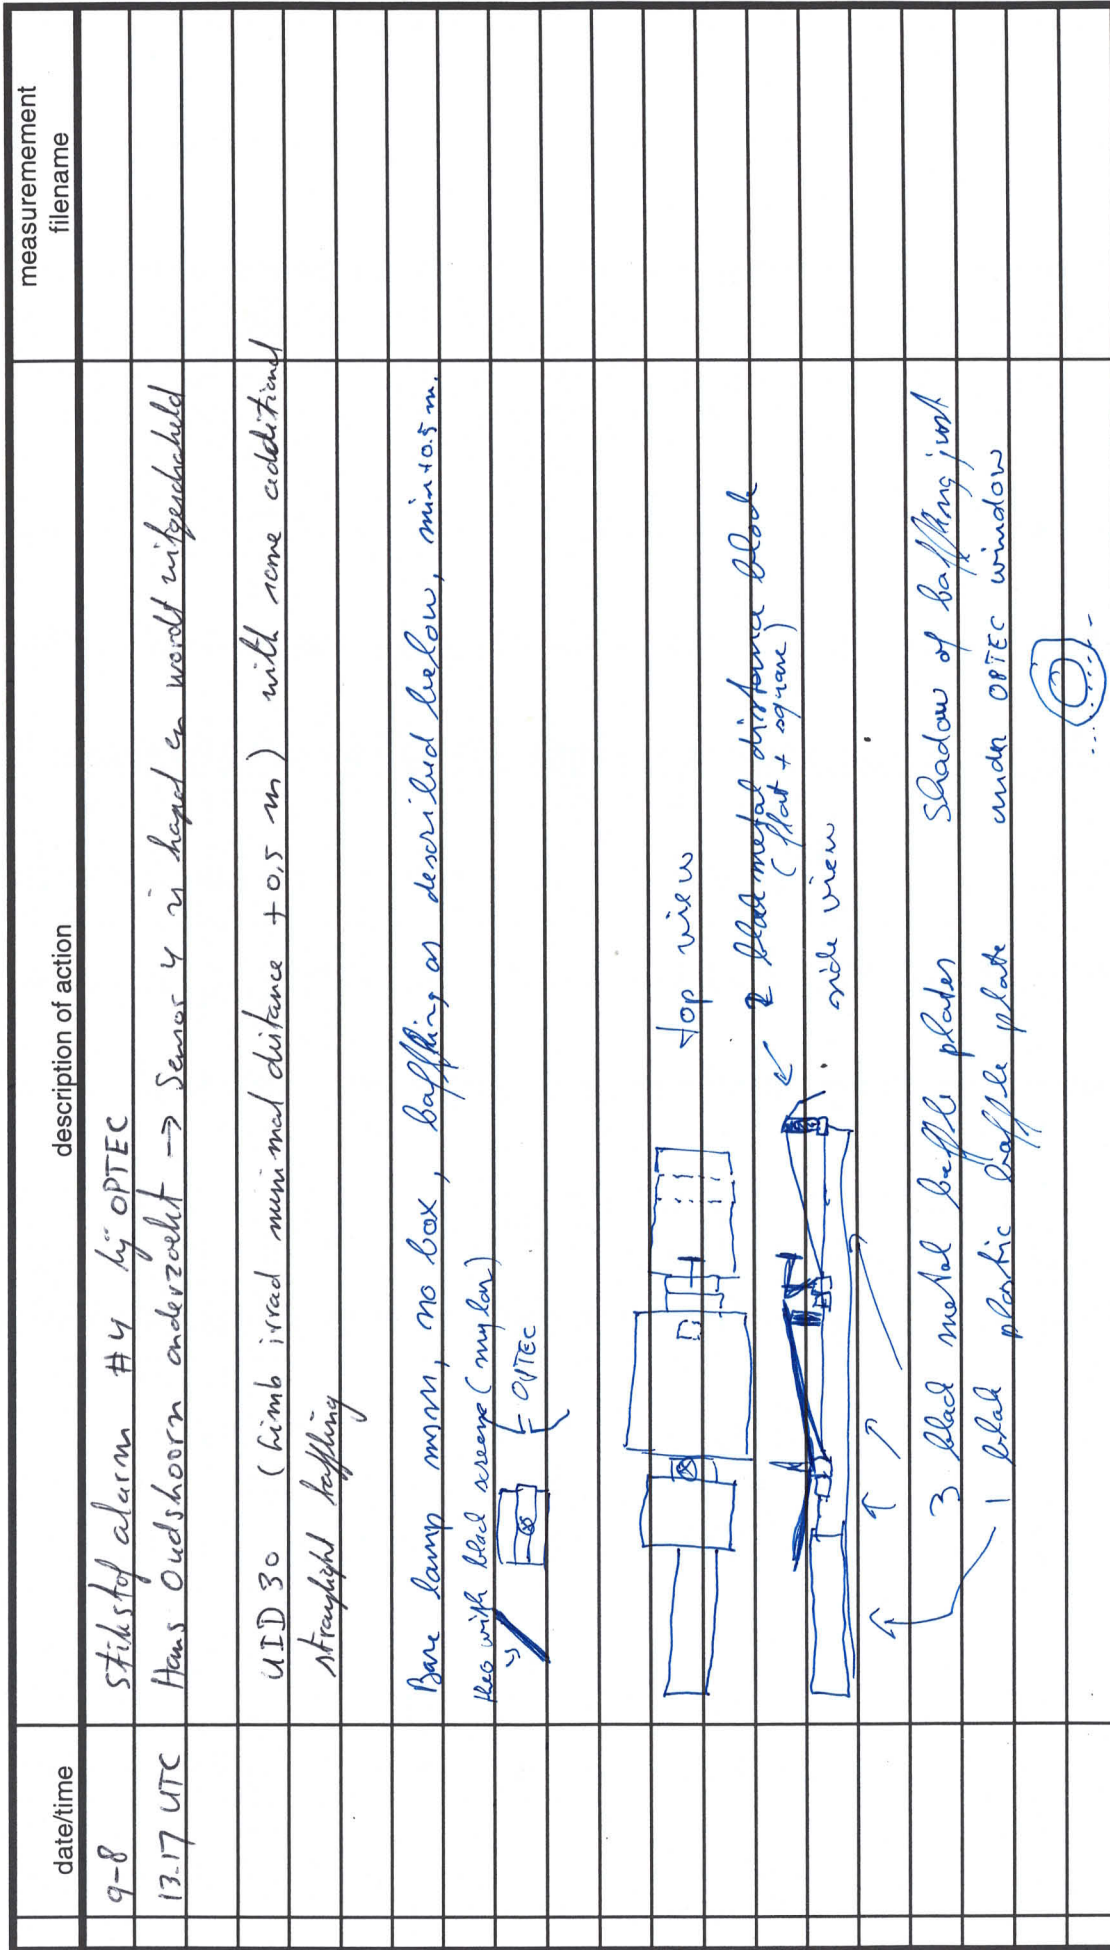 date/time
description of action
measuremement
filename
9-8
Stikstof alarm #4 bij OPTEC
13.17 UTC
Hans Oudshoorn onderzoekt → Sensor 4 is kapot en wordt uitgeschakeld
UID 30 (Limb irrad minimal distance + 0,5 m) with some additional
straylight baffling
Bare lamp mm, no box, baffling as described below, min + 0.5 m.
theo with black screene (mylar)
OPTEC
top view
2 black metal distance block
(flat + square)
side view
3 black metal baffle plates
Shadow of baffling just
1 blak plastic baffle plate
under OPTEC window